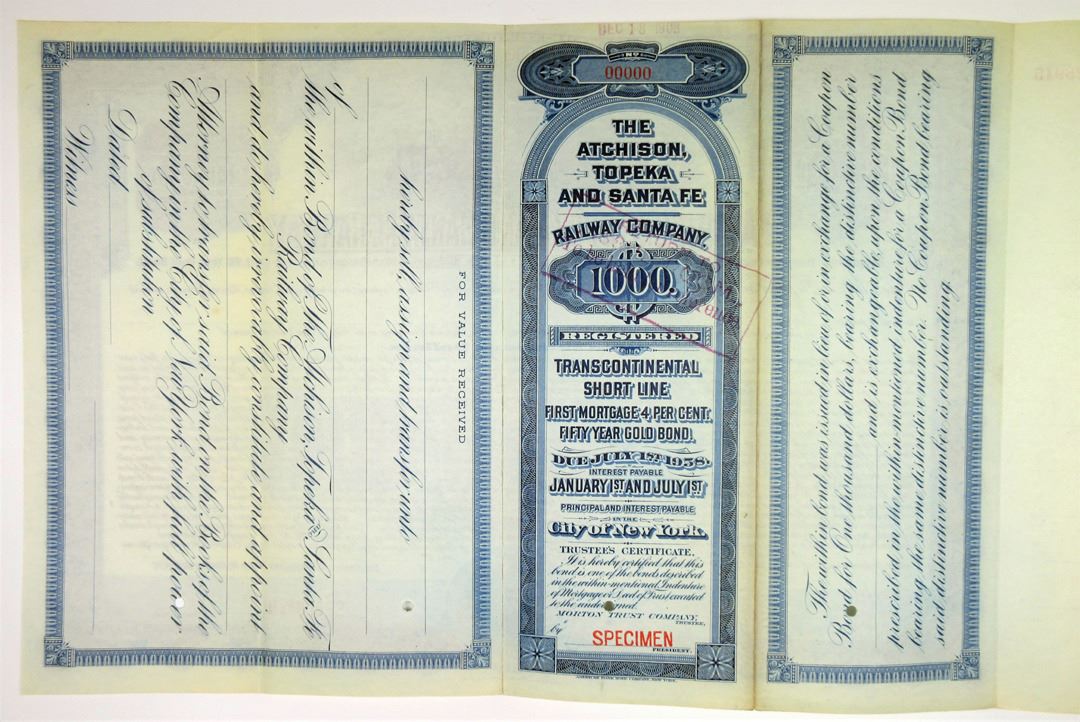 for value received
hereby sell, assign and transfer unto
of
the within Bond of The Atchison, Topeka and Santa Fe
Railway Company
and do hereby irrevocably constitute and appoint
Attorney to transfer said Bond on the Books of the
Company in the City of New York with full power
of substitution
Dated
Witness
DEC 18 1908
No.
00000
THE
ATCHISON,
TOPEKA
AND SANTA FE
RAILWAY COMPANY.
$1000.
REGISTERED
TRANSCONTINENTAL
SHORT LINE
FIRST MORTGAGE 4 PER CENT.
FIFTY YEAR GOLD BOND.
DUE JULY 1ST 1958.
INTEREST PAYABLE
JANUARY 1ST AND JULY 1ST
PRINCIPAL AND INTEREST PAYABLE
IN THE
City of New York.
TRUSTEE'S CERTIFICATE.
It is hereby certified that this
bond is one of the bonds described
in the within-mentioned Indenture
of Mortgage or Deed of Trust executed
to the undersigned.
MORTON TRUST COMPANY,
TRUSTEE,
by
SPECIMEN
PRESIDENT.
AMERICAN BANK NOTE COMPANY, NEW YORK.
The within bond was issued in lieu of or in exchange for a Coupon
Bond for One thousand dollars, bearing the distinctive number
and is exchangeable, upon the conditions
prescribed in the within-mentioned indenture for a Coupon Bond
bearing the same distinctive number. No Coupon Bond bearing
said distinctive number is outstanding.